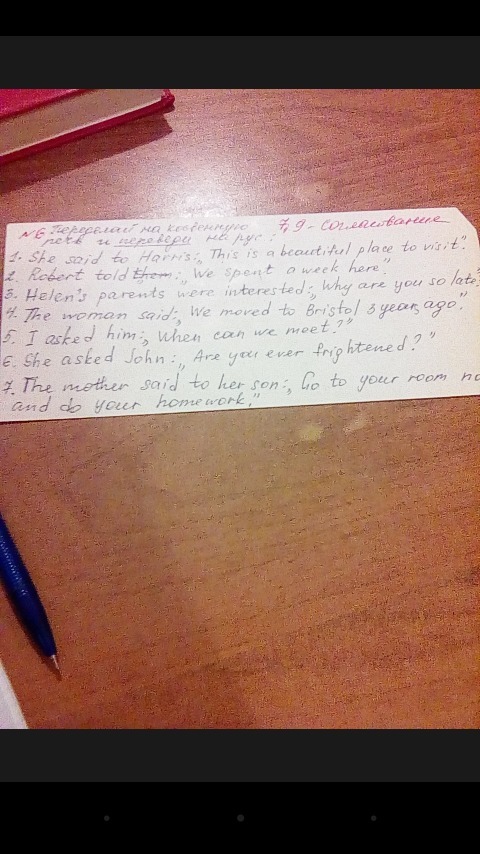 №6 Переделай на косвенную 7,9 - согласование
речь и переведи на рус:
1. She said to Harris: „This is a beautiful place to visit."
2. Robert told them: „We spent a week here."
3. Helen's parents were interested: „Why are you so late
4. The woman said: „We moved to Bristol 3 years ago."
5. I asked him: „When can we meet?"
6. She asked John: „Are you ever frightened?"
7. The mother said to her son: „Go to your room no
and do your homework."